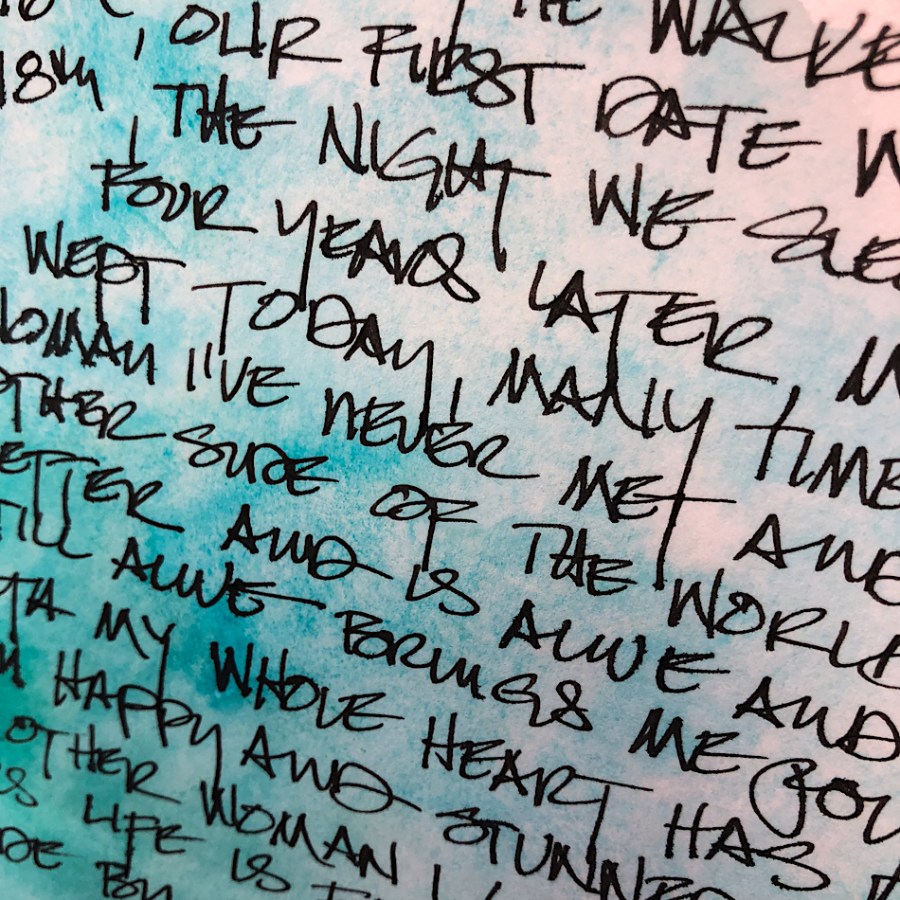 HE WALKE
18th, OUR FIRST DATE W
, THE NIGHT WE SLE
FOUR YEARS LATER M
WEPT TODAY, MANY TIME
WOMAN I'VE NEVER MET AND
OTHER SIDE OF THE WORLD
ETTER AND IS ALIVE AND
ILL ALIVE BRINGS ME JOY
TH MY WHOLE HEART HAS
HAPPY AND STUNNED
OTHER WOMAN
S LIFE IS
DE BY